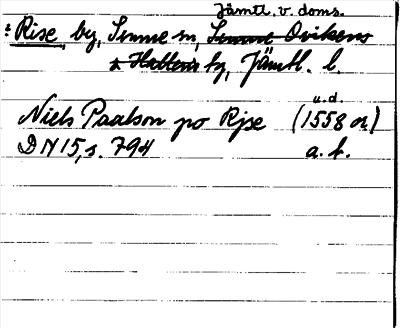 Jämtl. v. doms.
: Rise, by, Sunne sn, Sunne Ovikens
o. Hallens tg, Jämtl. l.
u.d.
Niels Paalson po Rjse (1558 or)
DN 15, s. 794 a. b.